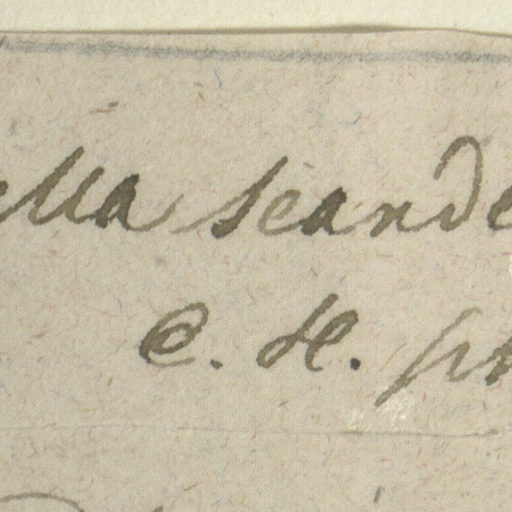 ella scande
C. H. pr